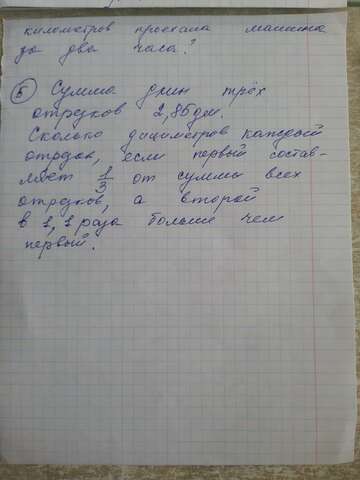 километров проехала машина
за два часа?
5 Сумма длин трёх
отрезков 2,85дм.
Сколько дициметров каждый
отрезок, если первый состав-
ляет 1/3 от суммы всех
отрезков, а второй
в 1,1 раза больше чем
первый.